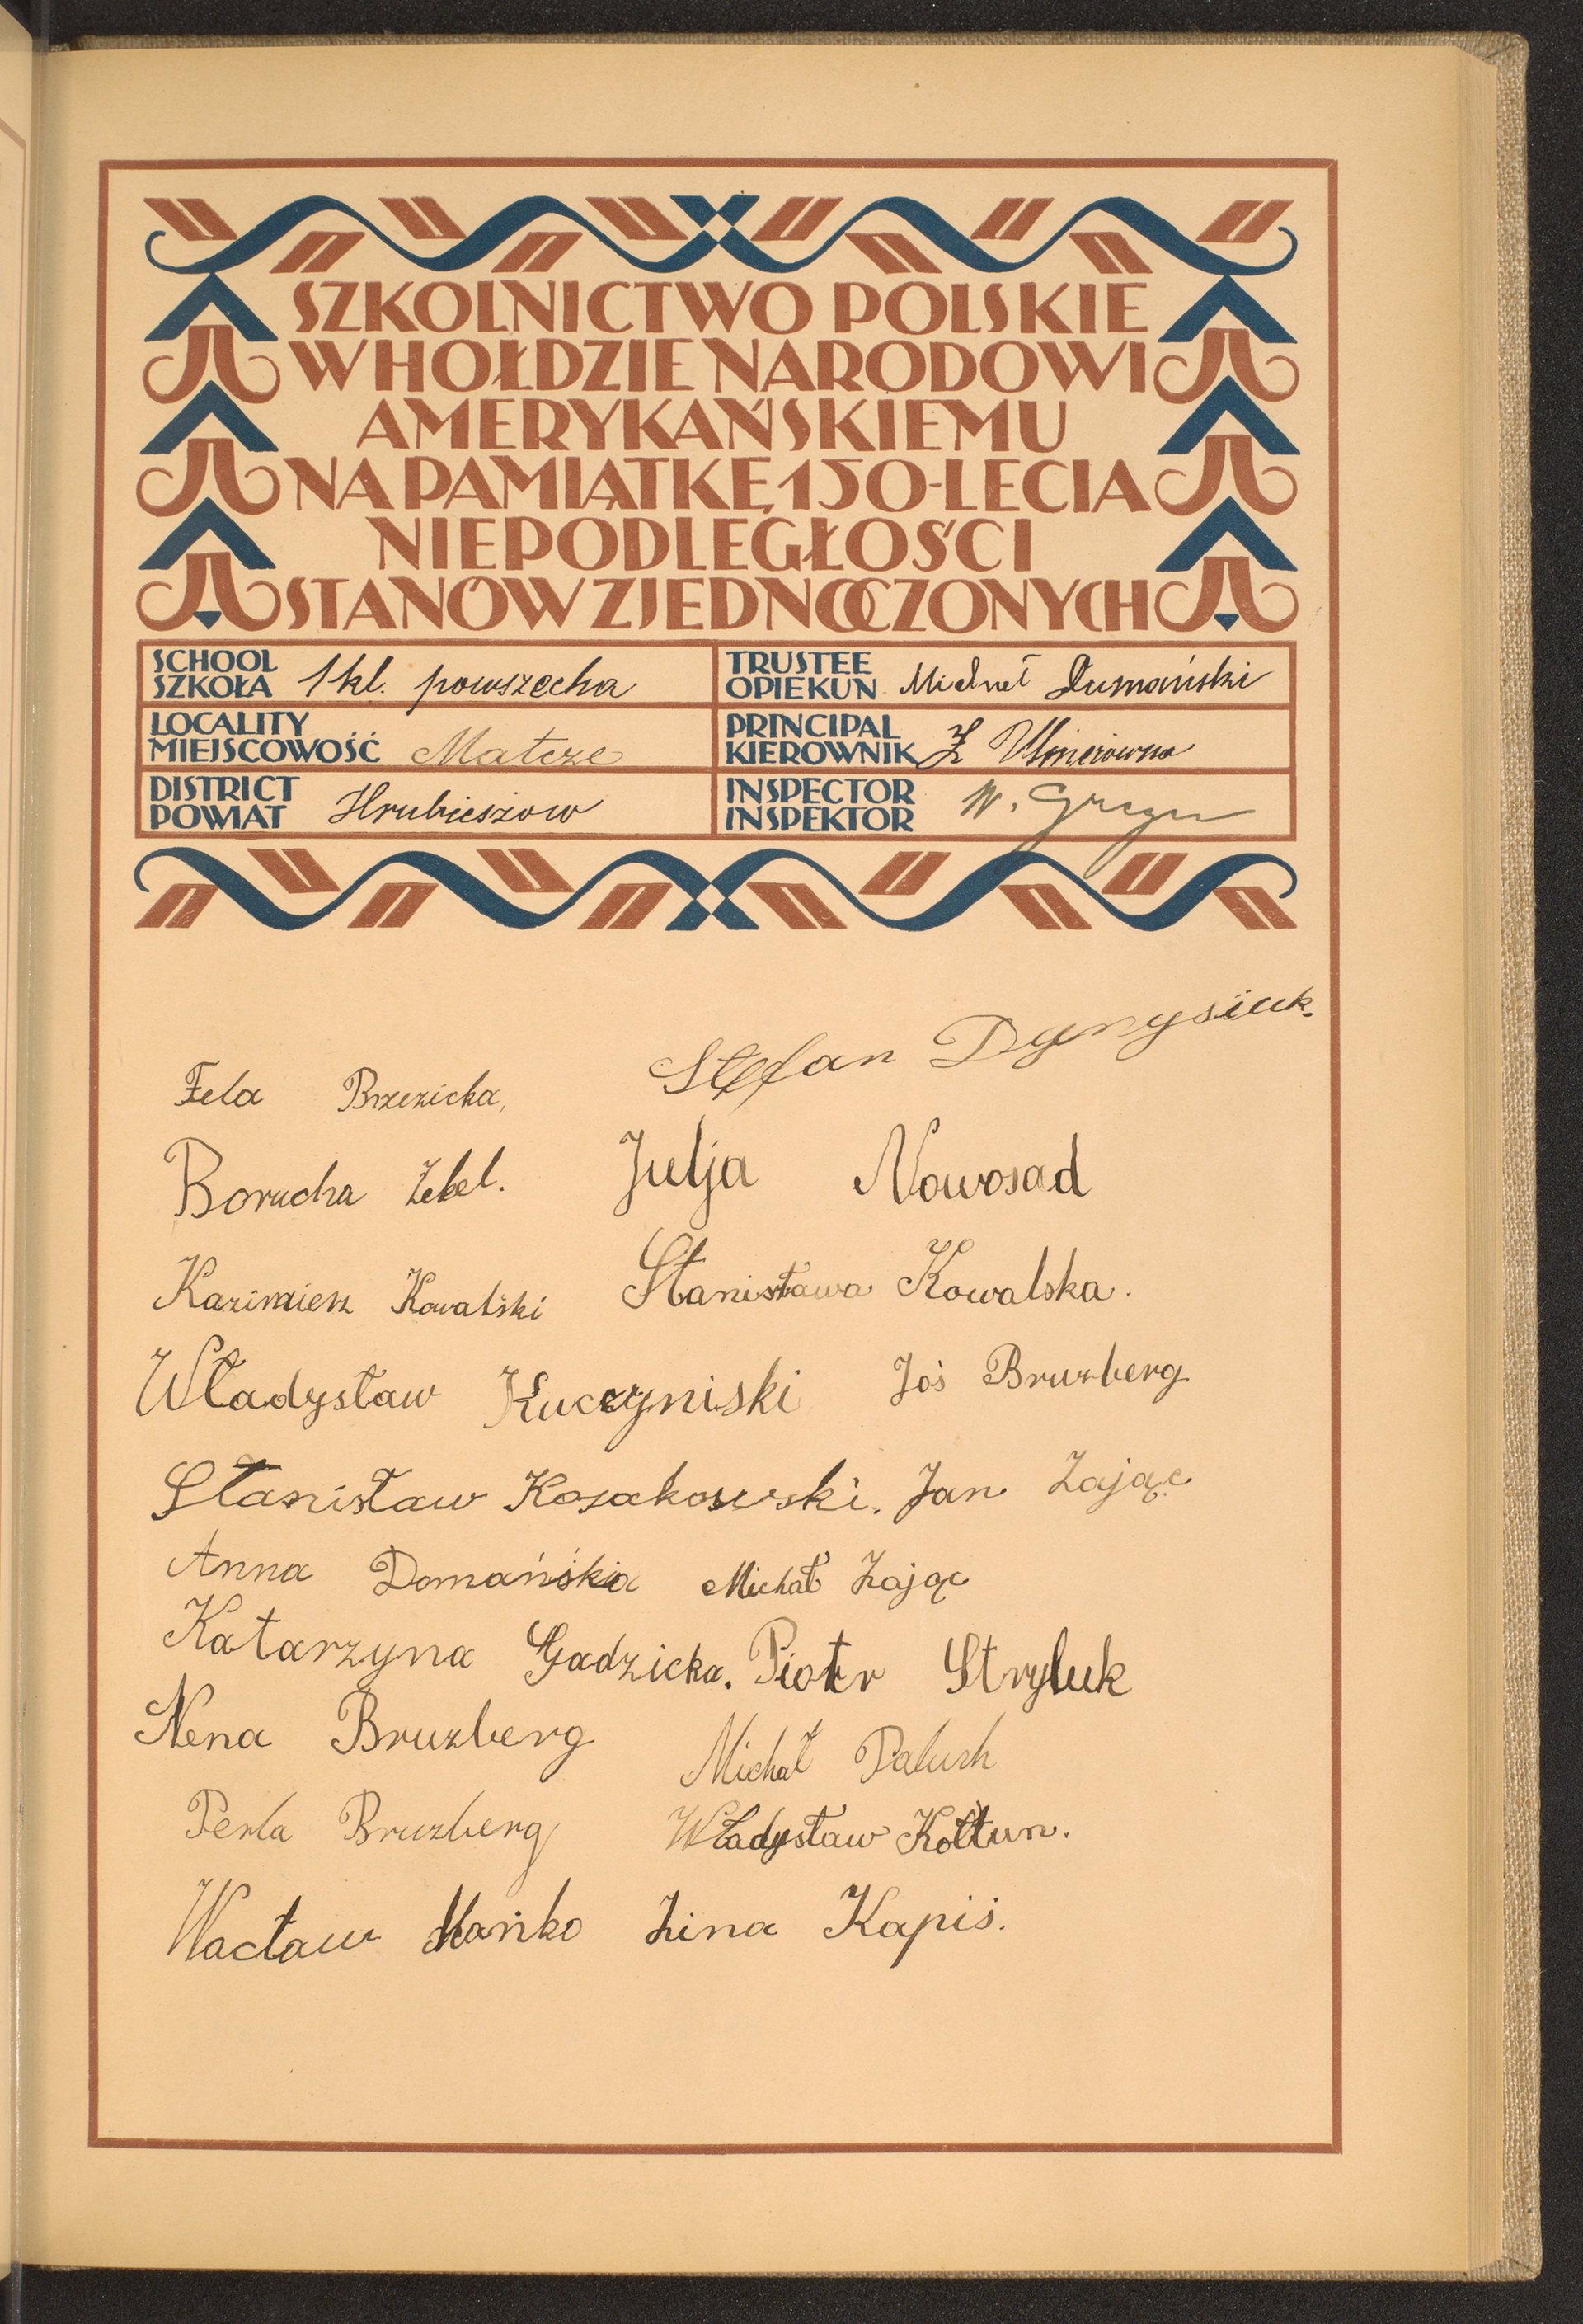 SZKOLNICTWO POLSKIE
W HOŁDZIE NARODOWI
AMERYKAŃSKIEMU
NA PAMIĄTKĘ 150-LECIA
NIEPODLEGŁOŚCI
STANÓW ZJEDNOCZONYCH
SCHOOL
SZKOŁA 1 kl. powszecha
TRUSTEE
OPIEKUN Michał Dumański
LOCALITY
MIEJSCOWOŚĆ Matcze
PRINCIPAL
KIEROWNIK Z
DISTRICT
POWIAT Hrubieszow
INSPECTOR
INSPEKTOR W.
Stefan Dynysiuk.
Fela Brzezicka,
Borucha Lebel. Julja Nowosad
Kazimierz Kowalski Stanisława Kowalska.
Władysław Kuczyniski Joś Bruzberg
Stanisław Kosakowski. Jan Zając
Anna Domańska Michał Zając
Katarzyna Gadzicka. Piotr Stryluk
Nena Bruzberg Michał Paluch
Perla Bruzberg Władysław Kołtun.
Wacław Mańko Zina Kapiś.